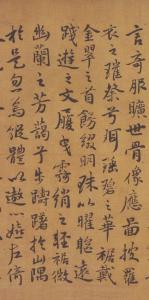 言奇服曠世骨像應圖披羅
衣之璀粲兮珥瑤碧之華裾戴
金翠之首飾綴明珠以曜軀遠
踐遊之文履曳霧綃之輕裾微
幽蘭之芳藹兮步踟躕於山隅
於是忽焉縱體以遨以嬉左倚